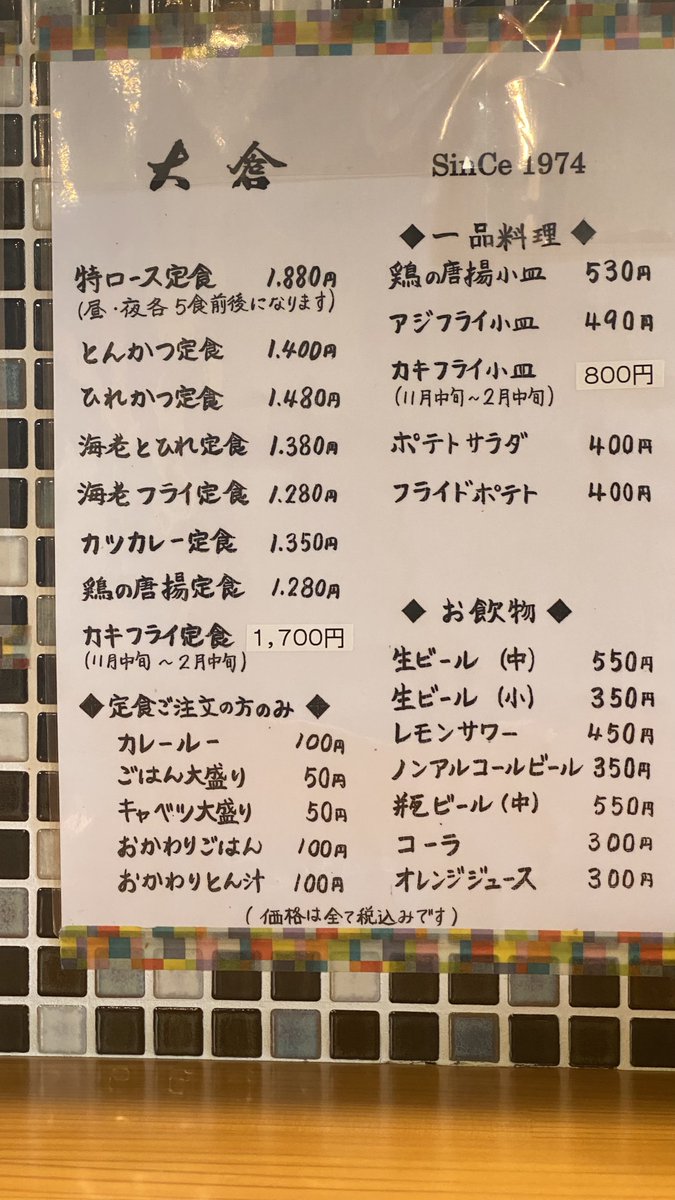 大倉
SinCe 1974
特ロース定食 1.880円
(昼・夜各5食前後になります)
とんかつ定食 1.400円
ひれかつ定食 1.480円
海老とひれ定食 1.380円
海老フライ定食 1.280円
カツカレー定食 1.350円
鶏の唐揚定食 1.280円
カキフライ定食 1,700円
(11月中旬～2月中旬)
◆定食ご注文の方のみ◆
カレールー 100円
ごはん大盛り 50円
キャベツ大盛り 50円
おかわりごはん 100円
おかわりとん汁 100円
◆一品料理◆
鶏の唐揚小皿 530円
アジフライ小皿 490円
カキフライ小皿 800円
(11月中旬～2月中旬)
ポテトサラダ 400円
フライドポテト 400円
◆お飲物◆
生ビール(中) 550円
生ビール(小) 350円
レモンサワー 450円
ノンアルコールビール 350円
瓶ビール(中) 550円
コーラ 300円
オレンジジュース 300円
(価格は全て税込みです)